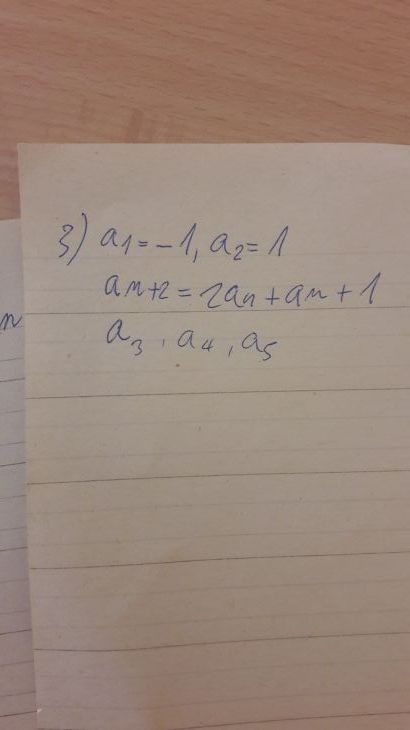 3) a₁ = -1, a₂ = 1
aₙ₊₂ = 2aₙ + aₙ + 1
n
a₃, a₄, a₅